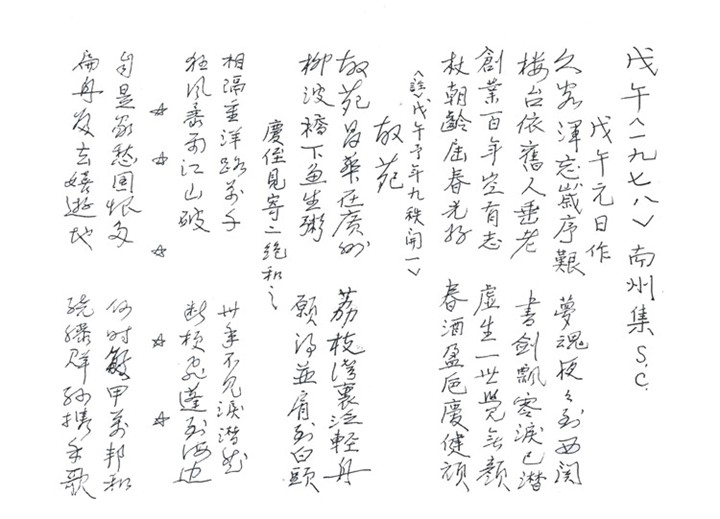 戊午<一九七八> 南州集 S.C.
戊午元日作
久客渾忘歲序艱 夢魂夜々到西関
樓台依舊人垂老 書劍飄零淚已潸
創業百年空有志 虛生一世覺無顏
杖朝齡屆春光好 春酒盈卮慶健頑
<註>戊午予年九秩開一>
故苑
故苑昌華在廣州 荔枝灣裏泛輕舟
柳波橋下魚生粥 願得並肩到白頭
慶侄見寄二絕和之
相隔重洋路萬千 卅年不見淚潸然
狂風暴雨江山破 斷梗飛蓬到海边
☆ ☆ ☆ ☆ ☆
自是家愁國恨多 何时解甲萬邦和
扁舟去嬉遊地 繞膝群孙携手歌